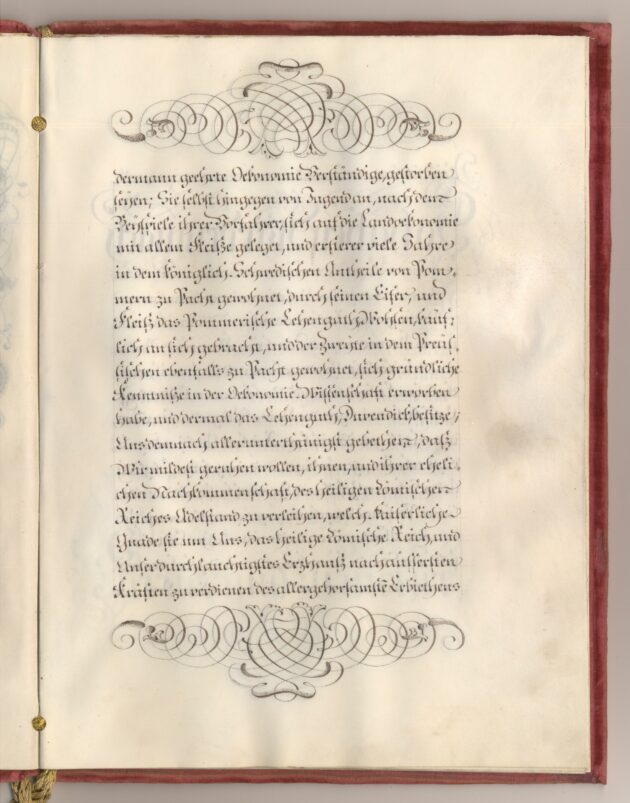 dermann geehrte Oekonomie Verständige, gestorben
seyen; Sie selbst hingegen von Jugend an, nach dem
Beyspiele ihrer Vorfahrer, sich auf die Landoekonomie
mit allem Fleiße geleget, und ersterer viele Jahre
in dem königlich-Schwedischen Antheile von Pom-
mern zu Pacht gewohnet, durch seinen Eifer, und
Fleiß das Pommerische Lehenguth, käuf-
lich an sich gebracht, und der Zweite in dem Preus-
sischen ebenfalls zu Pacht gewohnet, sich gründliche
Kenntniße in der Oekonomie-Wissenschaft erworben
habe, und dermal das Lehenguth, besitze;
Uns demnach allerunterthänigst gebethen, daß
Wir mildest geruhen wollen, ihnen, und ihrer eheli-
chen Nachkommenschaft, des heiligen Römischen
Reiches Adelstand zu verleihen, welch Kaiserliche
Gnade sie um Uns, das heilige Römische Reich, und
Unser durchlauchtigstes Erzhauß nach äussersten
Kräften zu verdienen des allergehorsamste Erbiethens